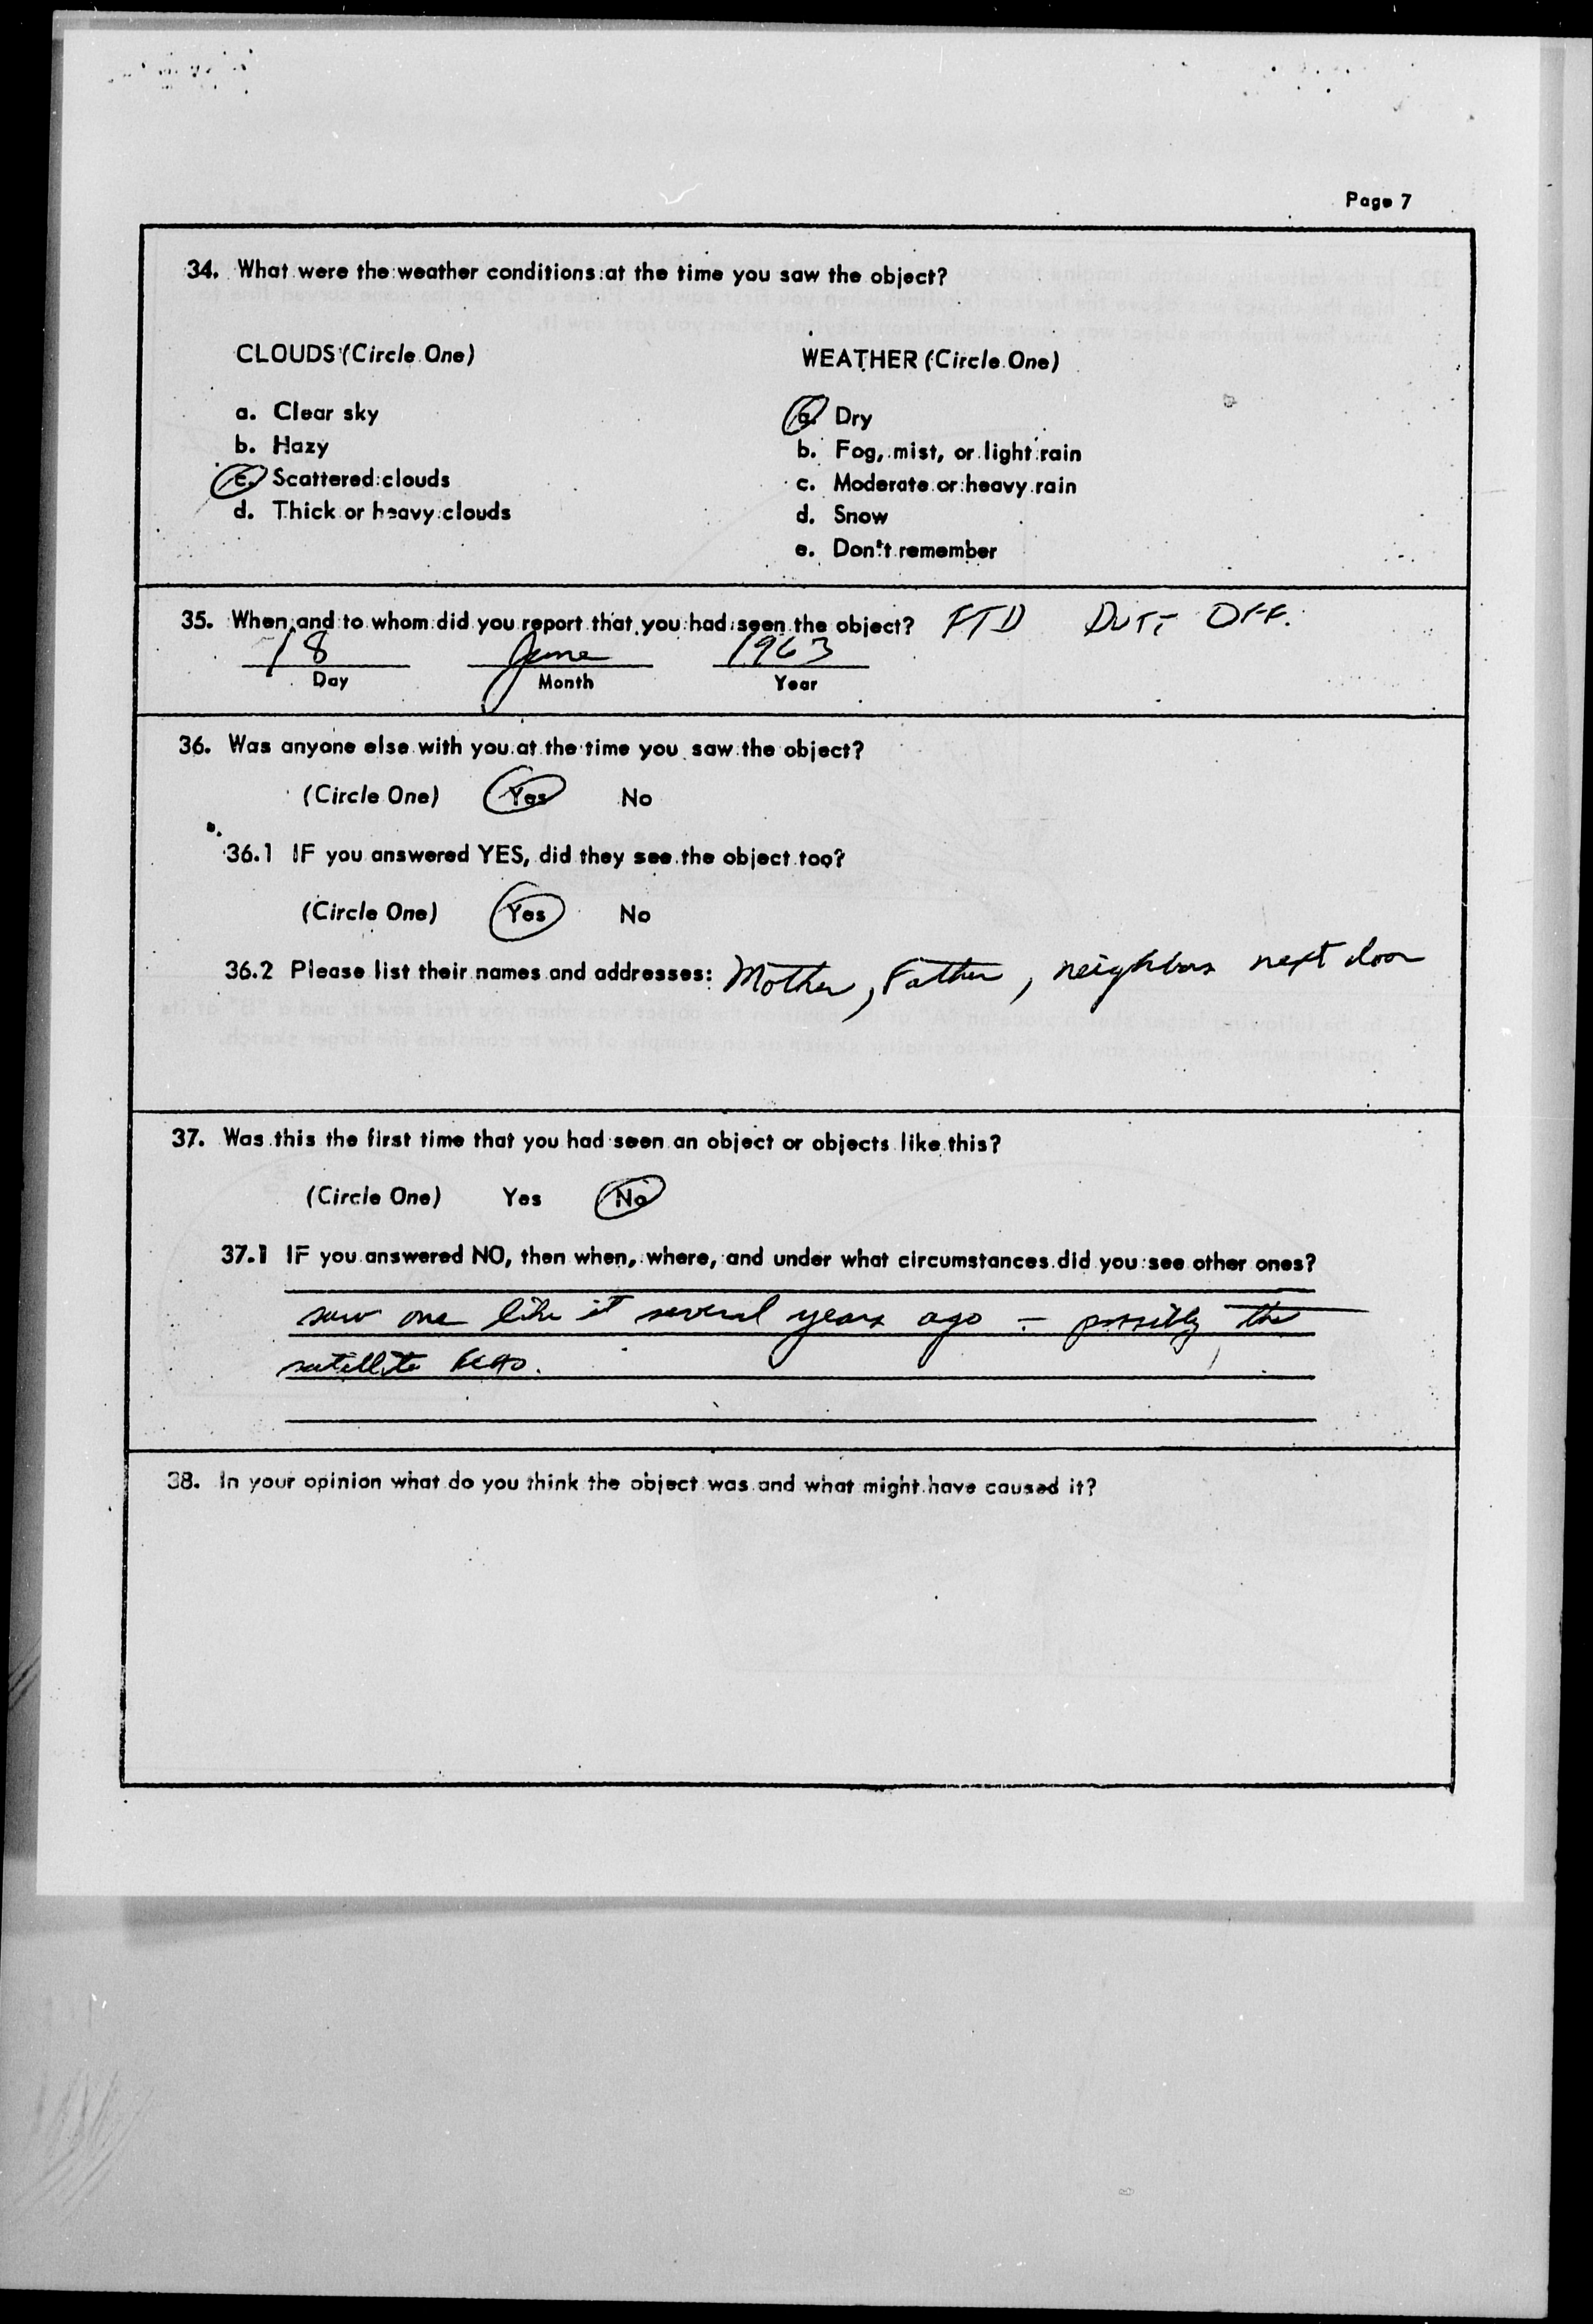 Page 7
34. What were the weather conditions at the time you saw the object?
CLOUDS (Circle One)
WEATHER (Circle One)
a. Clear sky
b. Hazy
c. Scattered clouds
d. Thick or heavy clouds
a. Dry
b. Fog, mist, or light rain
c. Moderate or heavy rain
d. Snow
e. Don't remember
35. When and to whom did you report that you had seen the object? FTD Duty Off.
18 June 1963
Day Month Year
36. Was anyone else with you at the time you saw the object?
(Circle One) Yes No
36.1 IF you answered YES, did they see the object too?
(Circle One) Yes No
36.2 Please list their names and addresses: Mother, Father, neighbors next door
37. Was this the first time that you had seen an object or objects like this?
(Circle One) Yes No
37.1 IF you answered NO, then when, where, and under what circumstances did you see other ones?
saw one like it several years ago - possibly the
satellite Echo.
38. In your opinion what do you think the object was and what might have caused it?